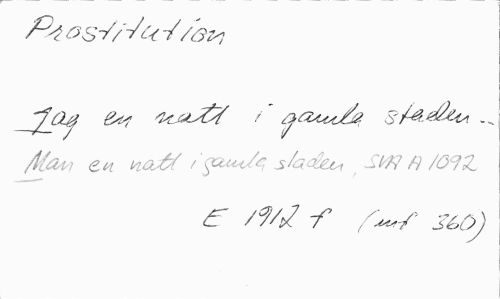 Prostitution
Jag en natt i gamla staden...
Man en natt i gamla staden, SVA A 1092
E 1912 f (mf 360)